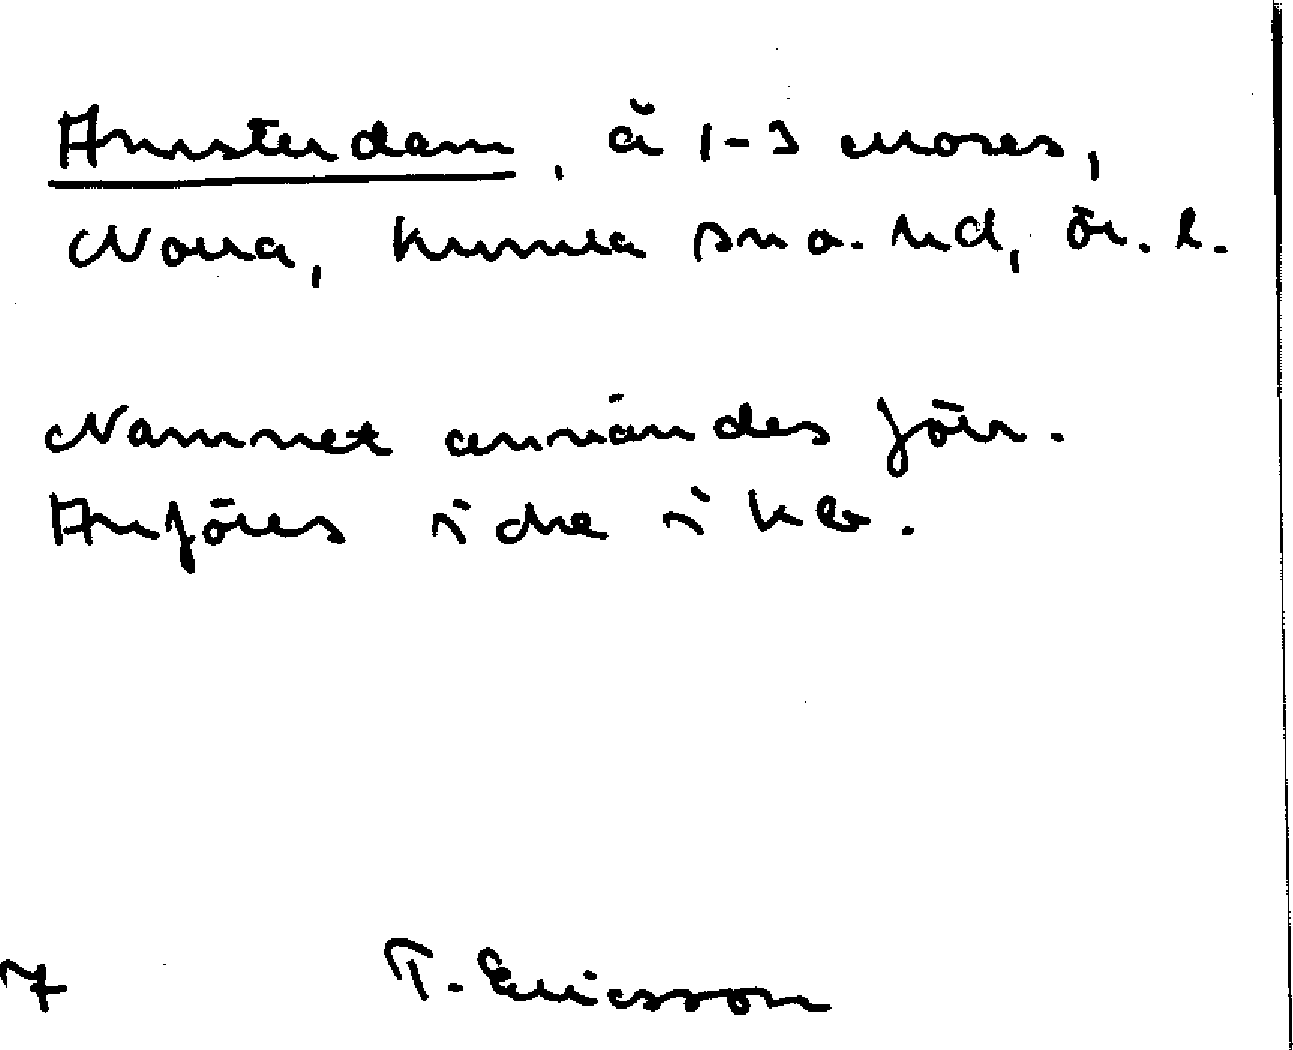 Amsterdam, å 1-3 Moses,
Norra, Kumla sn o. hd, Ör. l.
Namnet användes förr.
Anföres icke i kb.
7 T. Ericsson